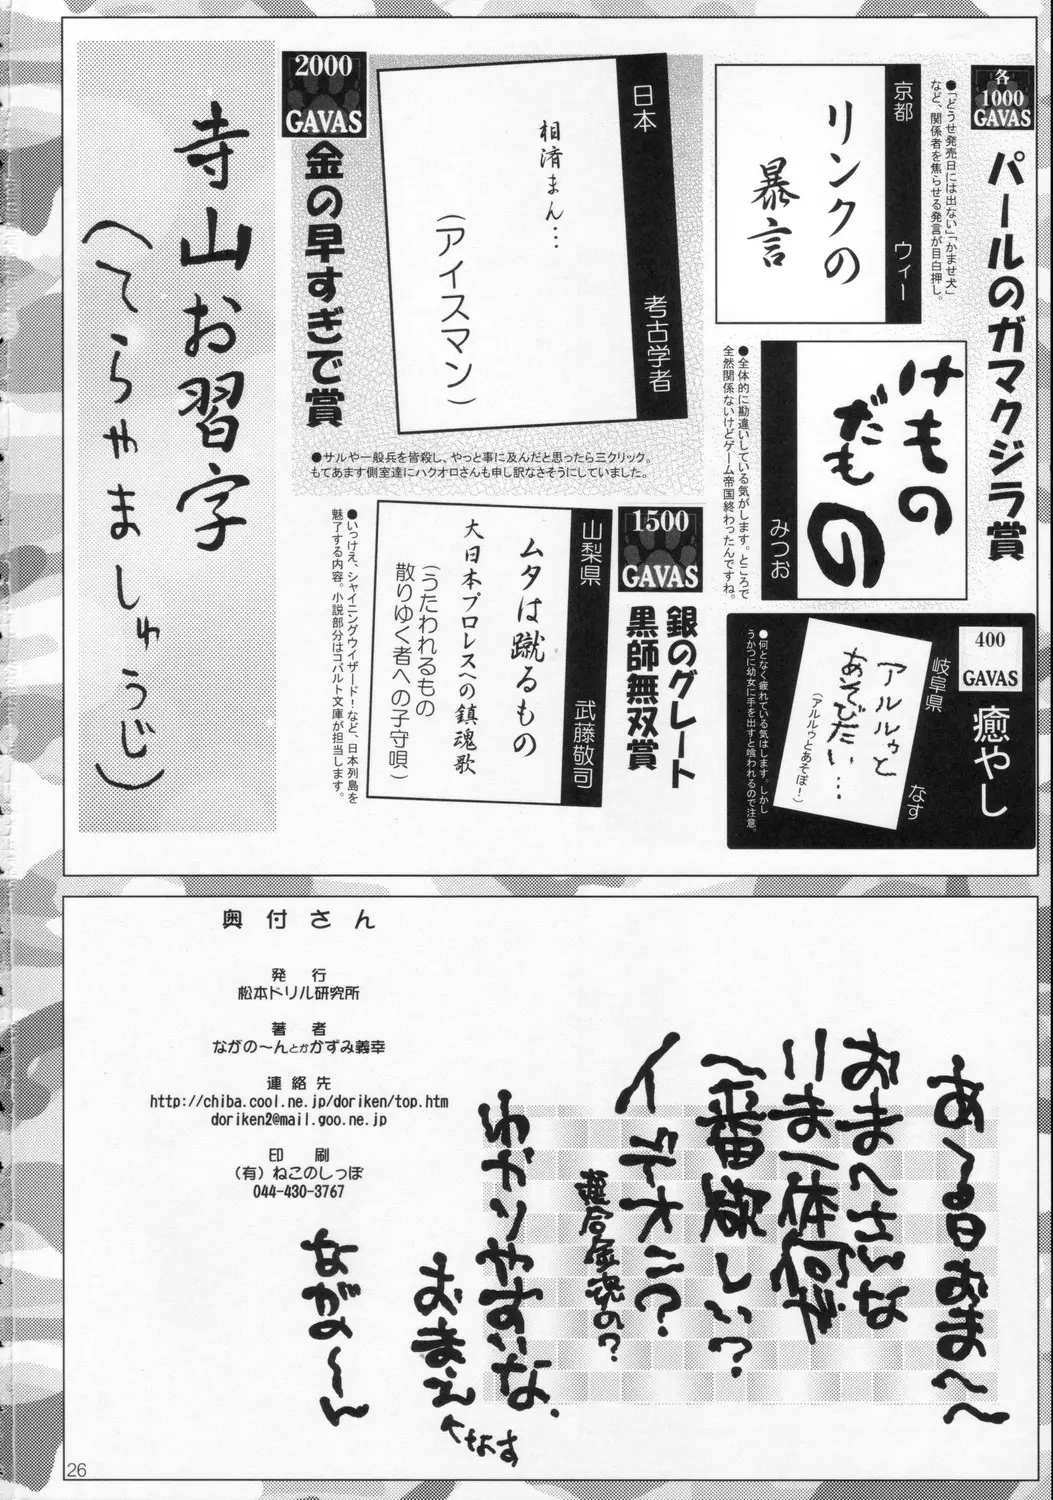 各
1000
GAVAS
パールのガマクジラ賞
京都　ウィー
リンクの
暴言
●「どうせ発売日には出ない」「かませ犬」
など、関係者を焦らせる発言が目白押し。
みつお
けもの
だもの
●全体的に勘違いしている気がします。ところで
全然関係ないけどゲーム帝国終わったんですね。
400
GAVAS
癒やし
岐阜県　なす
アルルゥと
あそびたい…
(アルルゥとあそぼ!)
●何となく疲れている気はします。しかし
うかつに幼女に手を出すと喰われるので注意。
2000
GAVAS
金の早すぎで賞
日本　考古学者
相済まん…
(アイスマン)
●サルや一般兵を皆殺し、やっと事に及んだと思ったら三クリック。
もてあます側室達にハクオロさんも申し訳なさそうにしていました。
1500
GAVAS
銀のグレート
黒師無双賞
山梨県　武藤敬司
ムタは蹴るもの
大日本プロレスへの鎮魂歌
(うたわれるもの
散りゆく者への子守唄)
●いっけえ、シャイニングウィザード!など、日本列島を
魅了する内容。小説部分はコバルト文庫が担当します。
寺山お習字
(てらやましゅうじ)
奥付さん
発行
松本ドリル研究所
著者
ながの〜んとかかずみ義幸
連絡先
http://chiba.cool.ne.jp/doriken/top.htm
doriken2@mail.goo.ne.jp
印刷
(有)ねこのしっぽ
044-430-3767
ある日おま〜〜
おまへさんな
いま一体何が
一番欲しい?
イデオン?
超合金魂の?
わかりやすいな、
おまえ
なす
ながの〜ん
26